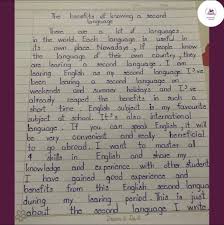 The benefits of knowing a second
language
There are a lot of languages
in the world. Each language is useful in
its own place. Nowadays, if people know
the language of their own country, they
are learing second language. I am
learing English as my second language. I've
been learing a second language on
weekends and summer holidays and I've
already reaped the benefits in such a
short time. English subject is my favourite
subject at school. It's also international
language. If you can speak English, it will
be very convenient and really beneficial
to go abroad. I want to master all
4 skills in English and share my
knowledge and experience with other student
I have gained good experience and
benefits from this English second language
during my learing period. This is just
about the second language I write